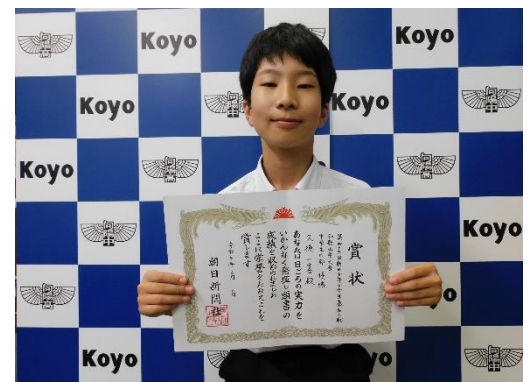 Koyo
Koyo
Koyo
Koyo
Koyo
Koyo
Koyo
yo
賞状
和歌山県大会
中学生の部 優勝
殿
あなたは日ごろの実力を
いかんなく発揮し頭書の
成績を収められました
ここに栄誉をたたえこれを
賞します
朝日新聞社